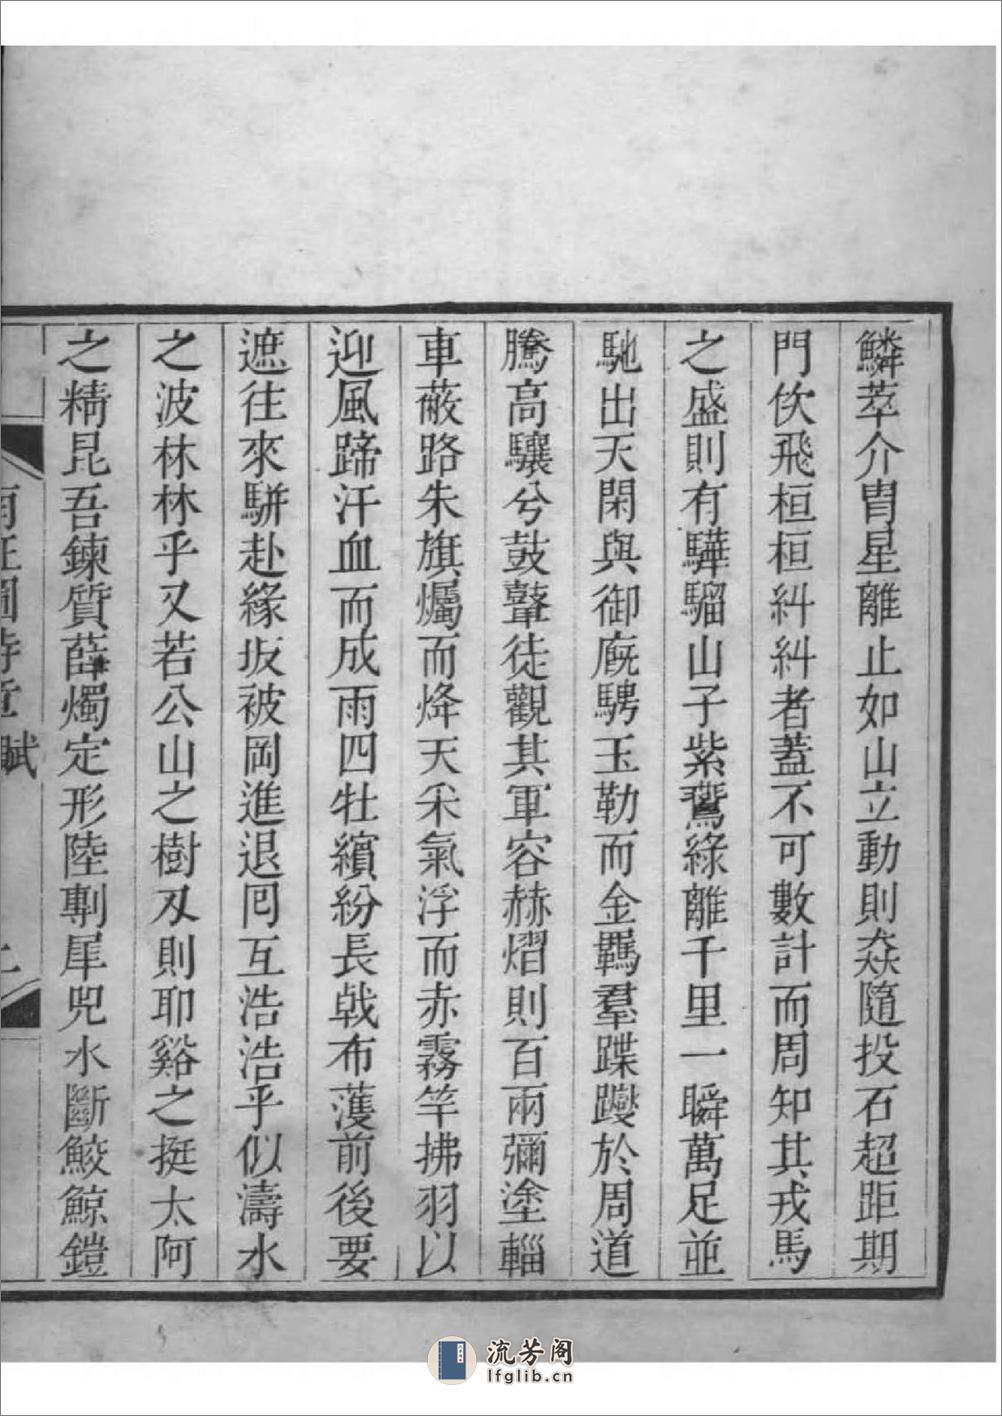 鱗萃介冑星離止如山立動則猋隨投石超距期
門佽飛桓桓糾糾者蓋不可數計而周知其戎馬
之盛則有驊騮山子紫鷰綠離千里一瞬萬足並
馳出天閑與御廐騁玉勒而金羈羣蹀躞於周道
騰高驤兮鼓鼙徒觀其軍容赫熠則百兩彌塗輜
車蔽路朱旗爥而烽天釆氣浮而赤霧竿拂羽以
迎風蹄汗血而成雨四牡繽紛長戟布濩前後要
遮往來駢赴緣坂被岡進退囘互浩浩乎似濤水
之波林林乎又若公山之樹刄則耶谿之挺太阿
之精昆吾鍊質薛燭定形陸剸犀兕水斷鮫鯨鎧
賦
流芳阁
lfglib.cn